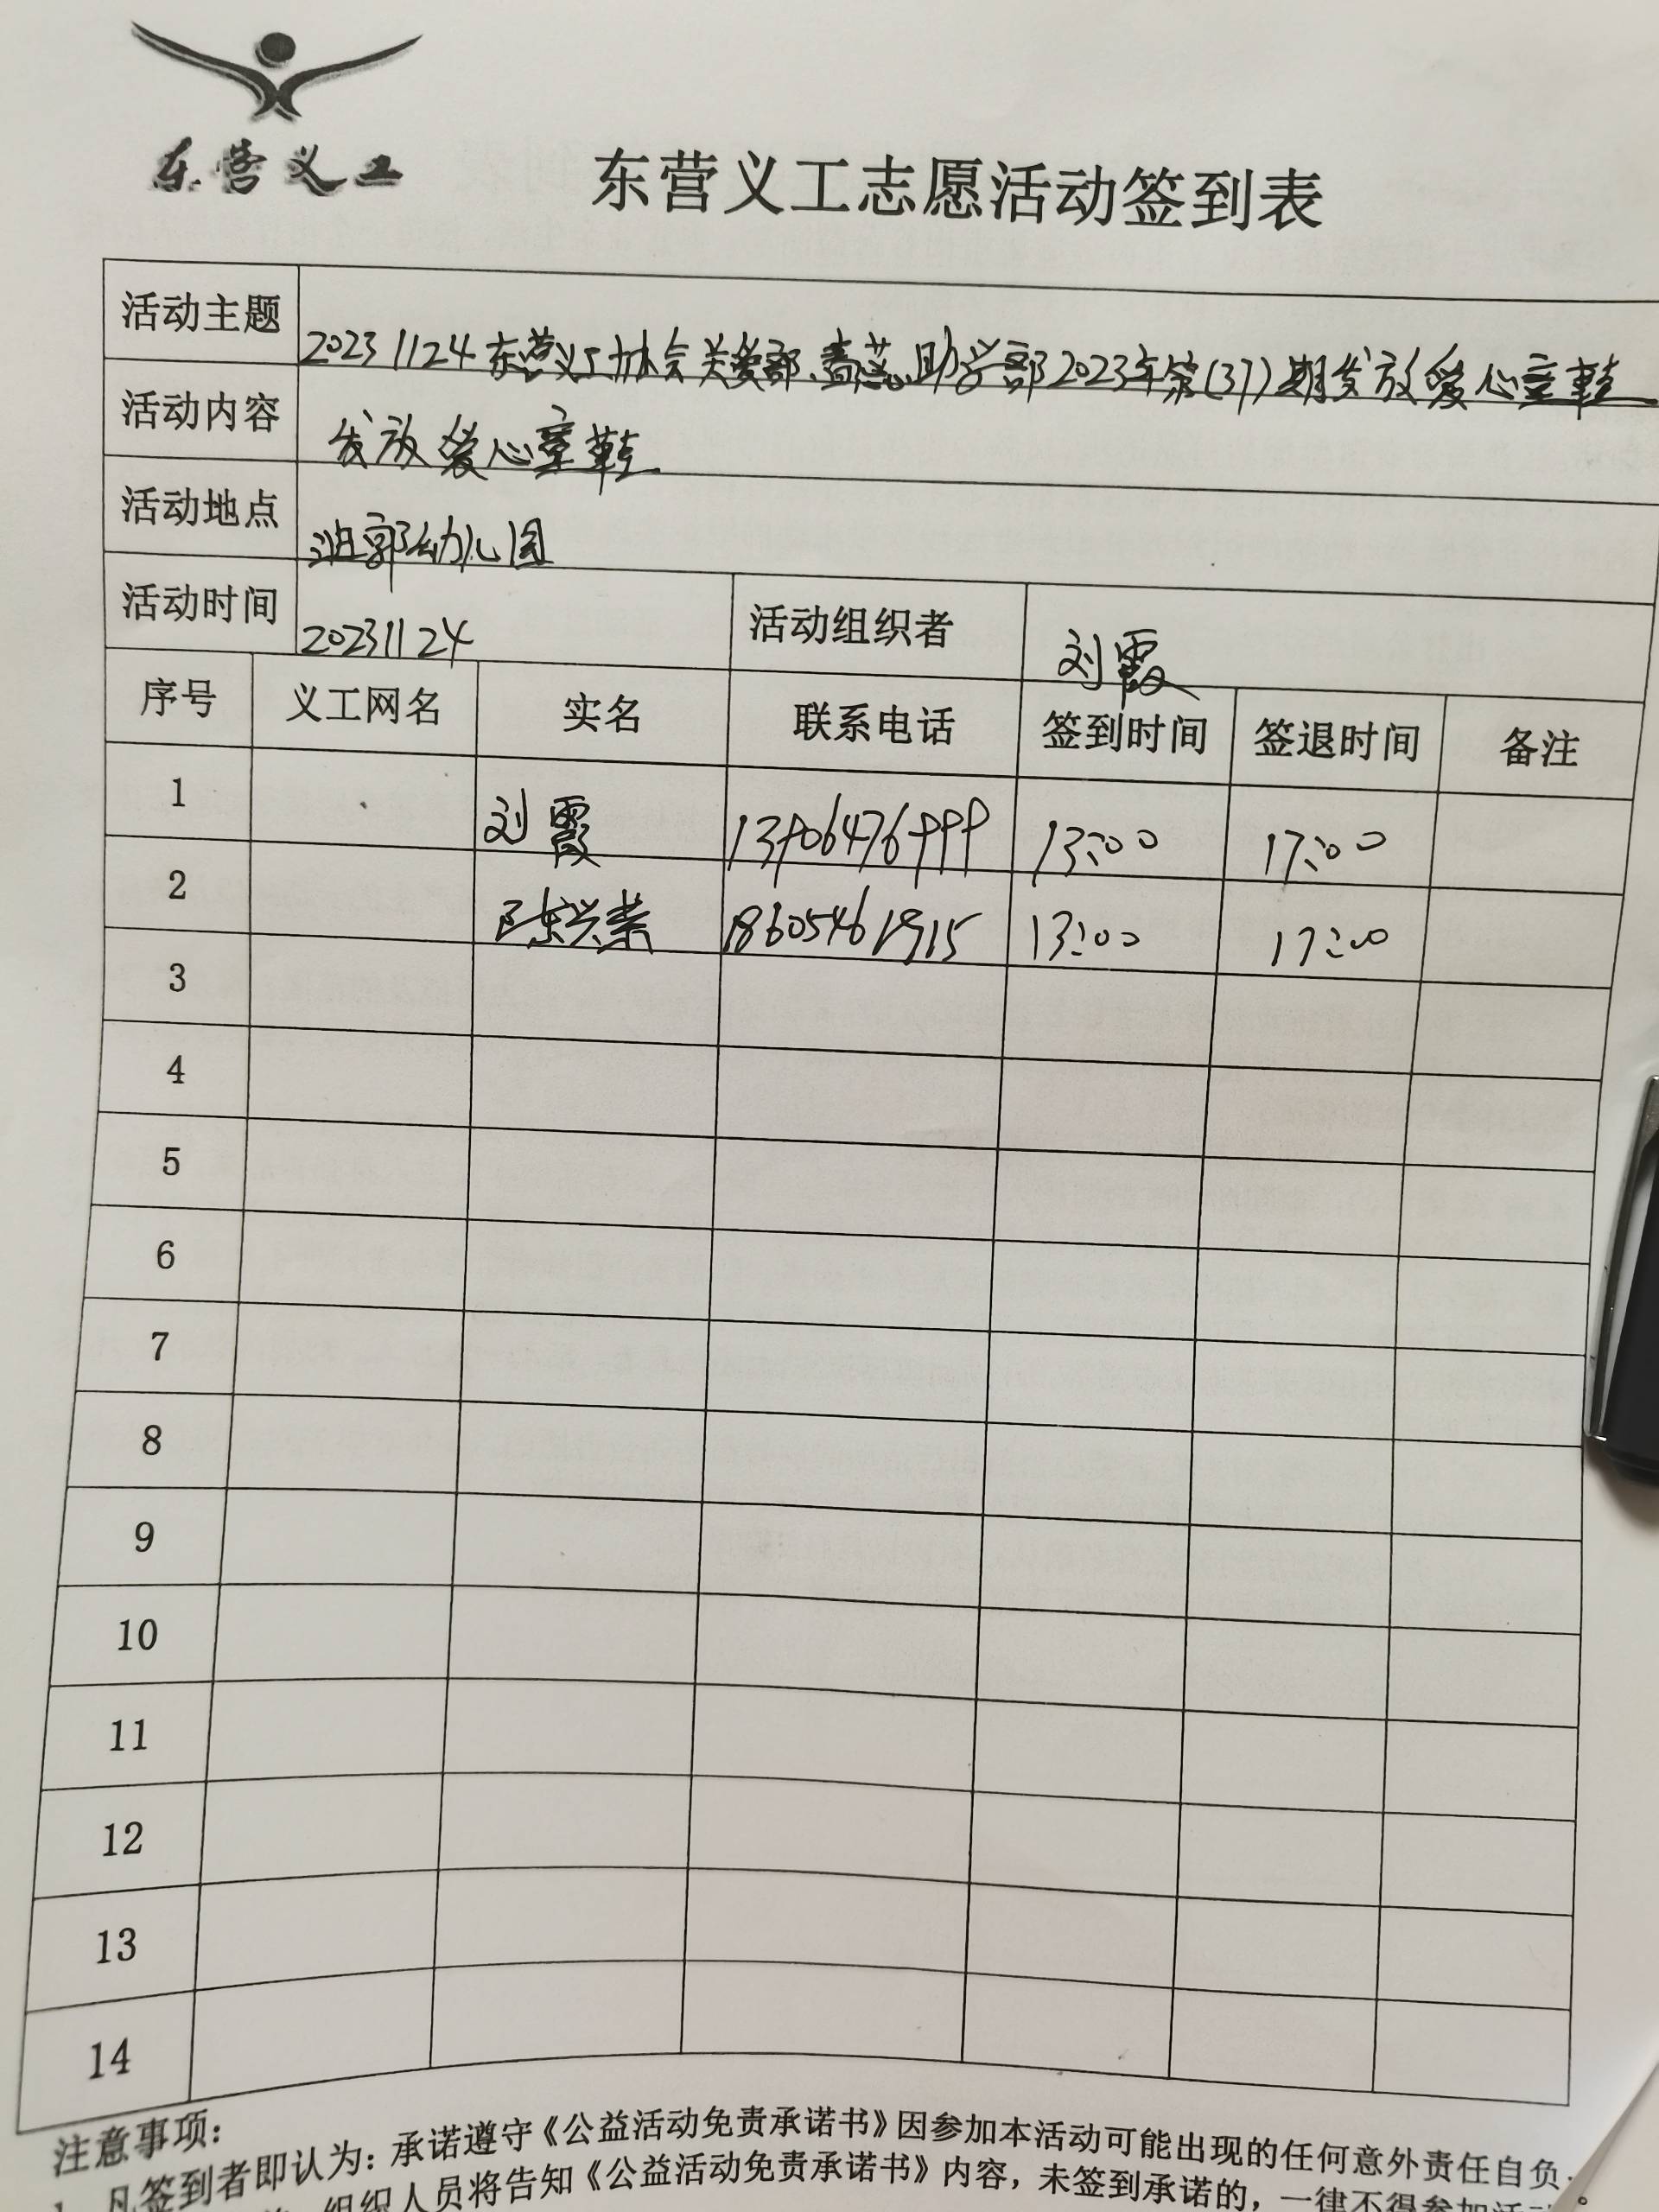 东营义工
东营义工志愿活动签到表
活动主题 20231124东营义工协会关爱部、春蕊助学部2023年第(37)期发放爱心童鞋
活动内容 发放爱心童鞋
活动地点 郭幼儿园
活动时间 20231124 活动组织者 刘霞
序号 义工网名 实名 联系电话 签到时间 签退时间 备注
1 刘霞 13:00 17:00
2 陈兴荣 13:00 17:00
3
4
5
6
7
8
9
10
11
12
13
14
注意事项：
凡签到者即认为：承诺遵守《公益活动免责承诺书》因参加本活动可能出现的任何意外责任自负
组织人员将告知《公益活动免责承诺书》内容，未签到承诺的，一律不得参加活